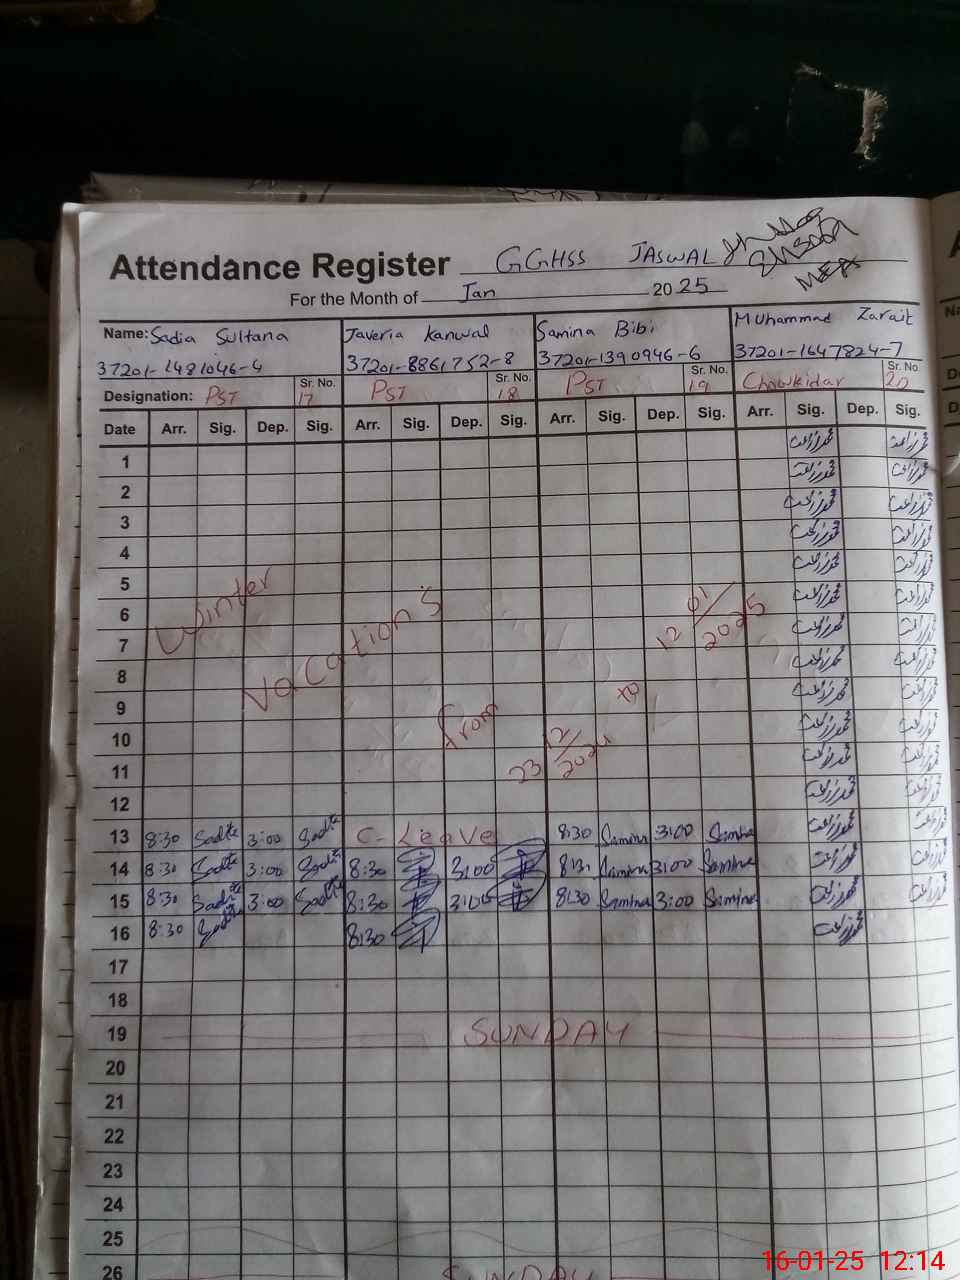 Attendance Register GGHSS JASWAL
Ehsan
MEA
For the Month of Jan 2025
Name: Sadia Sultana Javeria Kanwal Samina Bibi Muhammad Zarait
37201-1481046-4 37201-8861752-8 37201-1390946-6 37201-1647824-7
Designation: PST Sr. No. 17 PST Sr. No. 18 PST Sr. No. 19 Chowkidar Sr. No. 20
Date Arr. Sig. Dep. Sig. Arr. Sig. Dep. Sig. Arr. Sig. Dep. Sig. Arr. Sig. Dep. Sig.
1
2
3
4
5
6
7
8
9
10
11
12
Winter Vacations from 23 12/2024 to 12 01/2025
13 8:30 Sadia 3:00 Sadia C-Leave 8:30 Samina 3:00 Samina
14 8:30 Sadia 3:00 Sadia 8:30 3:00 8:30 Samina 3:00 Samina
15 8:30 Sadia 3:00 Sadia 8:30 3:00 8:30 Samina 3:00 Samina
16 8:30 Sadia 8:30
17
18
19 SUNDAY
20
21
22
23
24
25
26 SUNDAY
16-01-25 12:14